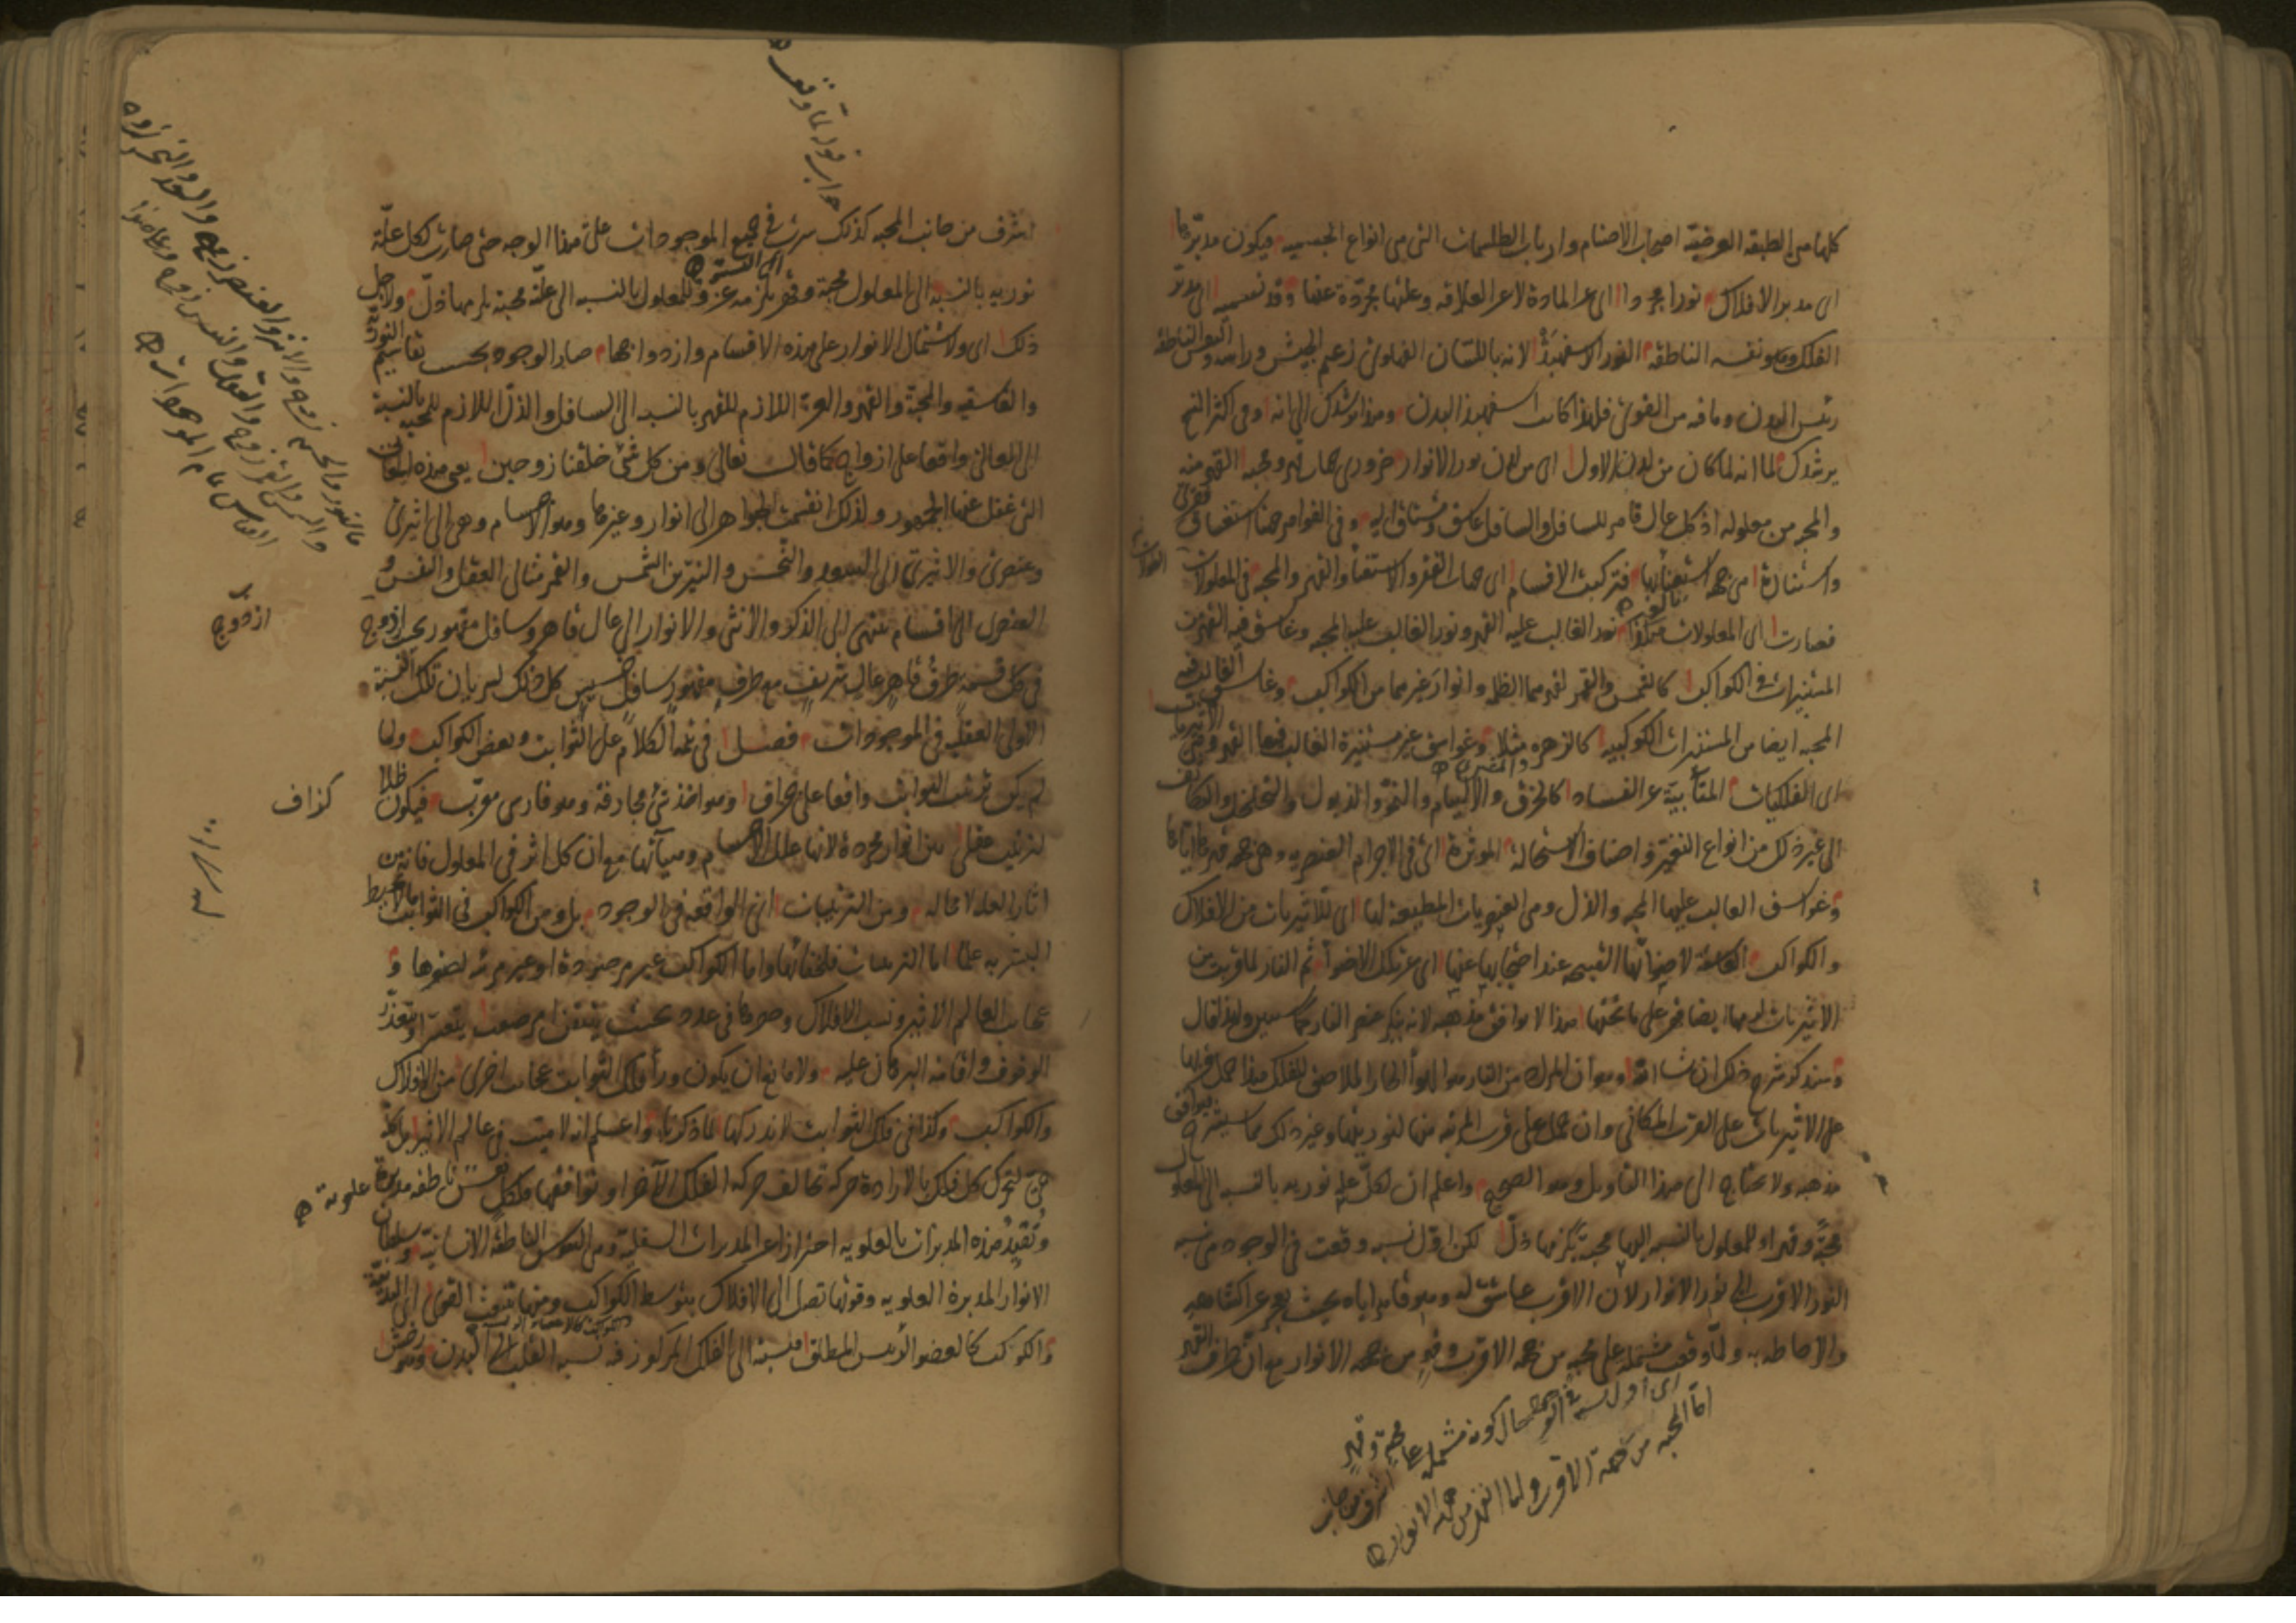 كلها من الطبقة العرضية اصحاب الاصنام وارباب الطلسمات التى هى انواع الجسمية فيكون مدبرها
اى مدبر الافلاك نورا مجردا اى عن المادة لا عن العلاقة وعلتها مجردة عنها وقد نسميه اى مدبر
الفلك وهو نفسه الناطقة النور الاسفهبد لانه باللسان الفهلوى زعيم الجيش وراسه والنفس الناطقة
رئيس البدن وما فيه من القوى فلهذا كانت اسفهبد البدن وهذا يرشدك الى انه وفى اكثر النسخ
يرشدك لما انه لما كان من لدن الاول اى من لدن نور الانوار ضرورى جهات قهر ومحبة القهر منه
والمحبة من معلوله اذ كل عال قاهر للسافل والسافل عاشق ومشتاق اليه وفى القواهر جهتا استغساق فقرى
واستنارة اى من جهة استغنائها فتركبت الاقسام اى جهات الفقر والاستغناء والقهر والمحبة فى المعلولات
فصارت اى المعلولات هكذا نور الغالب عليه القهر ونور الغالب عليه المحبة وغاسق فيه القهر من
المستنيرات فى الكواكب كالشمس والقمر لقهرهما الظل وانوار غيرهما من الكواكب وغاسق الغالب فيه
المحبة ايضا من المستنيرات الكوكبية كالزهرة مثلا وغواسق غير مستنيرة الغالب فيها القهر وهى الاثيريات
اى الفلكيات المتأبية عن الفساد كالخرق والالتيام والنمو والذبول والتخلخل والتكاثف
الى غير ذلك من انواع التغير واصناف الاستحالة المؤثرة اى فى الاجرام العنصرية وهى جهة قهرها اياها
وغواسق الغالب عليها المحبة والذل وهى العنصريات المطيعة لها اى للاثيريات من الافلاك
والكواكب العاشقة لاضوائها القبيحة عند احتجابها عنها اى عن تلك الاضواء ثم النار لما قربت من
الاثيريات لزمها ايضا قهر على ما تحتها هذا لا يوافق مذهبه لانه ينكر عنصر النار كما سيبين ولهذا قال
وسنذكر شرح ذلك ان شاء الله وهو ان المراد من النار هو الهواء الحار الملاصق للفلك هذا حمل قربها
على الاثيريات على القرب المكانى وان حمل على قرب المرتبة منها لنوريتها وغير ذلك مما سيشرح فيوافق
مذهبه ولا يحتاج الى هذا التاويل وهو الصحيح واعلم ان لكل علة نورية بالنسبة الى المعلول
محبة وقهرا وللمعلول بالنسبة اليها محبة يلزمها ذل لكن اول نسبة وقعت فى الوجود هى نسبة
النور الاقرب الى نور الانوار لان الاقرب عاشق له وهو قاهر اياه بحيث يعجز عن اكتناهه
والاحاطة به ولما وقعت مشتملة على محبة من جهة الاقرب وقهر من جهة الانوار مع ان طرف القهر
اى اول نسبة فى الوجود حال كونه مشتملة على محبة وقهر
اما المحبة من جهة الاقرب واما القهر من جهة الانوار
اشرف من جانب
جواب قوله لما وقعت
اشرف من جانب المحبة كذلك سرت فى جميع الموجودات على هذا الوجه حتى صارت لكل علة
نورية بالنسبة الى المعلول محبة وقهر يلزمه عز وللمعلول بالنسبة الى علته محبة يلزمها ذل ولاجل
ذلك اى ولاشتمال الانوار على هذه الاقسام وازدواجها صار الوجود بحسب تقاسيم النورية
والغاسقية والمحبة والقهر والعزة اللازم للقهر بالنسبة الى السافل والذل اللازم للمحبة بالنسبة
الى العالى واقعا على ازواج كما قال تعالى ومن كل شئ خلقنا زوجين يعنى هذه المعانى
التى غفل عنها الجمهور ولذلك انقسمت الجواهر الى انوار وغيرها وهو الاجسام وهى الى اثيرى
وعنصرى والاثيرى الى السعود والنحس والنيرين الشمس والقمر مثالى العقل والنفس و
العنصرى الى اقسام تنتهى الى الذكر والانثى والانوار الى عال قاهر وسافل مقهور بحيث ازدوج
فى كل قسمة طرف قاهر عال شريف مع طرف مقهور سافل خسيس كل ذلك لسريان تلك القسمة
الاولى العقلية فى الموجودات فصل فى تتمة الكلام على الثوابت وبعض الكواكب ولما
لم يكن ترتيب الثوابت واقعا على جزاف وهو اخذ شئ مجازفة وهو فارسى معرب فيكون ظلا
لترتيب عقلى بين انوار مجردة لانها علل الاجسام وهيآتها مع ان كل اثر فى المعلول فانه من
اثار العلة لا محالة ومن الترتيبات اى الواقعة فى الوجود بل ومن الكواكب فى الثوابت ما لا يحيط
البشر به علما اما الترتيبات فلخفائها واما الكواكب غير مرصودة او غير مرئية لصغرها و
عجايب العالم الاثيرى ونسب الافلاك وحصرها فى عدد بحيث يتيقن امر صعب يتعسر او يتعذر
الوقوف واقامة البرهان عليه ولا مانع ان يكون وراء فلك الثوابت عجائب اخرى من الافلاك
والكواكب وكذا فى فلك الثوابت لا ندركها لما ذكرناه واعلم انه لا ميت فى عالم الاثير بل كله
حى لتحرك كل فلك بالارادة حركة تخالف حركة الفلك الآخر او توافقها فلكل نفس ناطقة مدبرة علوية
وتقيد هذه المدبرات بالعلوية احترازا عن المدبرات السفلية وهى النفوس الناطقة الانسانية وسلطان
الانوار المدبرة العلوية وقوتها تصل الى الافلاك بتوسط الكواكب ومنها تنبعث القوى اى البدنية
والكوكب كالعضو الرئيس المطلق فنسبته الى الفلك المركوز فيه نسبة القلب الى البدن وهورخش
ازدوج
كزاف